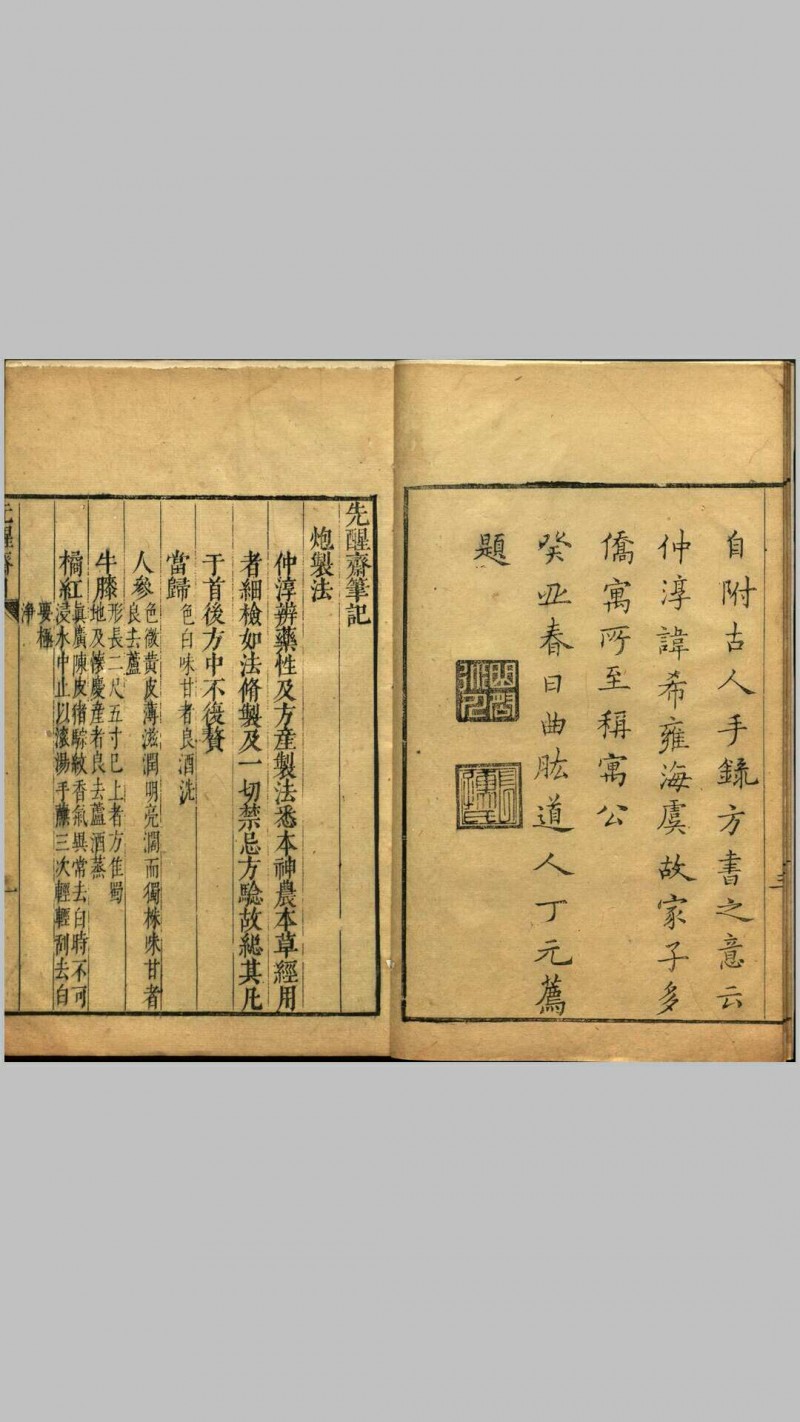 自附古人手錄方書之意云
仲淳諱希雍海虞故家子多
僑寓所至稱寓公
癸丑春日曲肱道人丁元薦
題
三
先醒齋筆記
炮製法
仲淳辨藥性及方産製法悉本神農本草經用
者細檢如法脩製及一切禁忌方驗故總其凡
于首後方中不復贅
當歸
色白味甘者良酒洗
人參
色微黃皮薄滋潤明亮濶而獨株味甘者
良去蘆
牛膝
形長二尺五寸已上者方佳蜀
地及懷慶産者良去蘆酒蒸
橘紅
眞廣陳皮猪鬃紋香氣異常去白時不可
浸水中止以滾湯手蘸三次輕輕刮去白
要極
淨
一